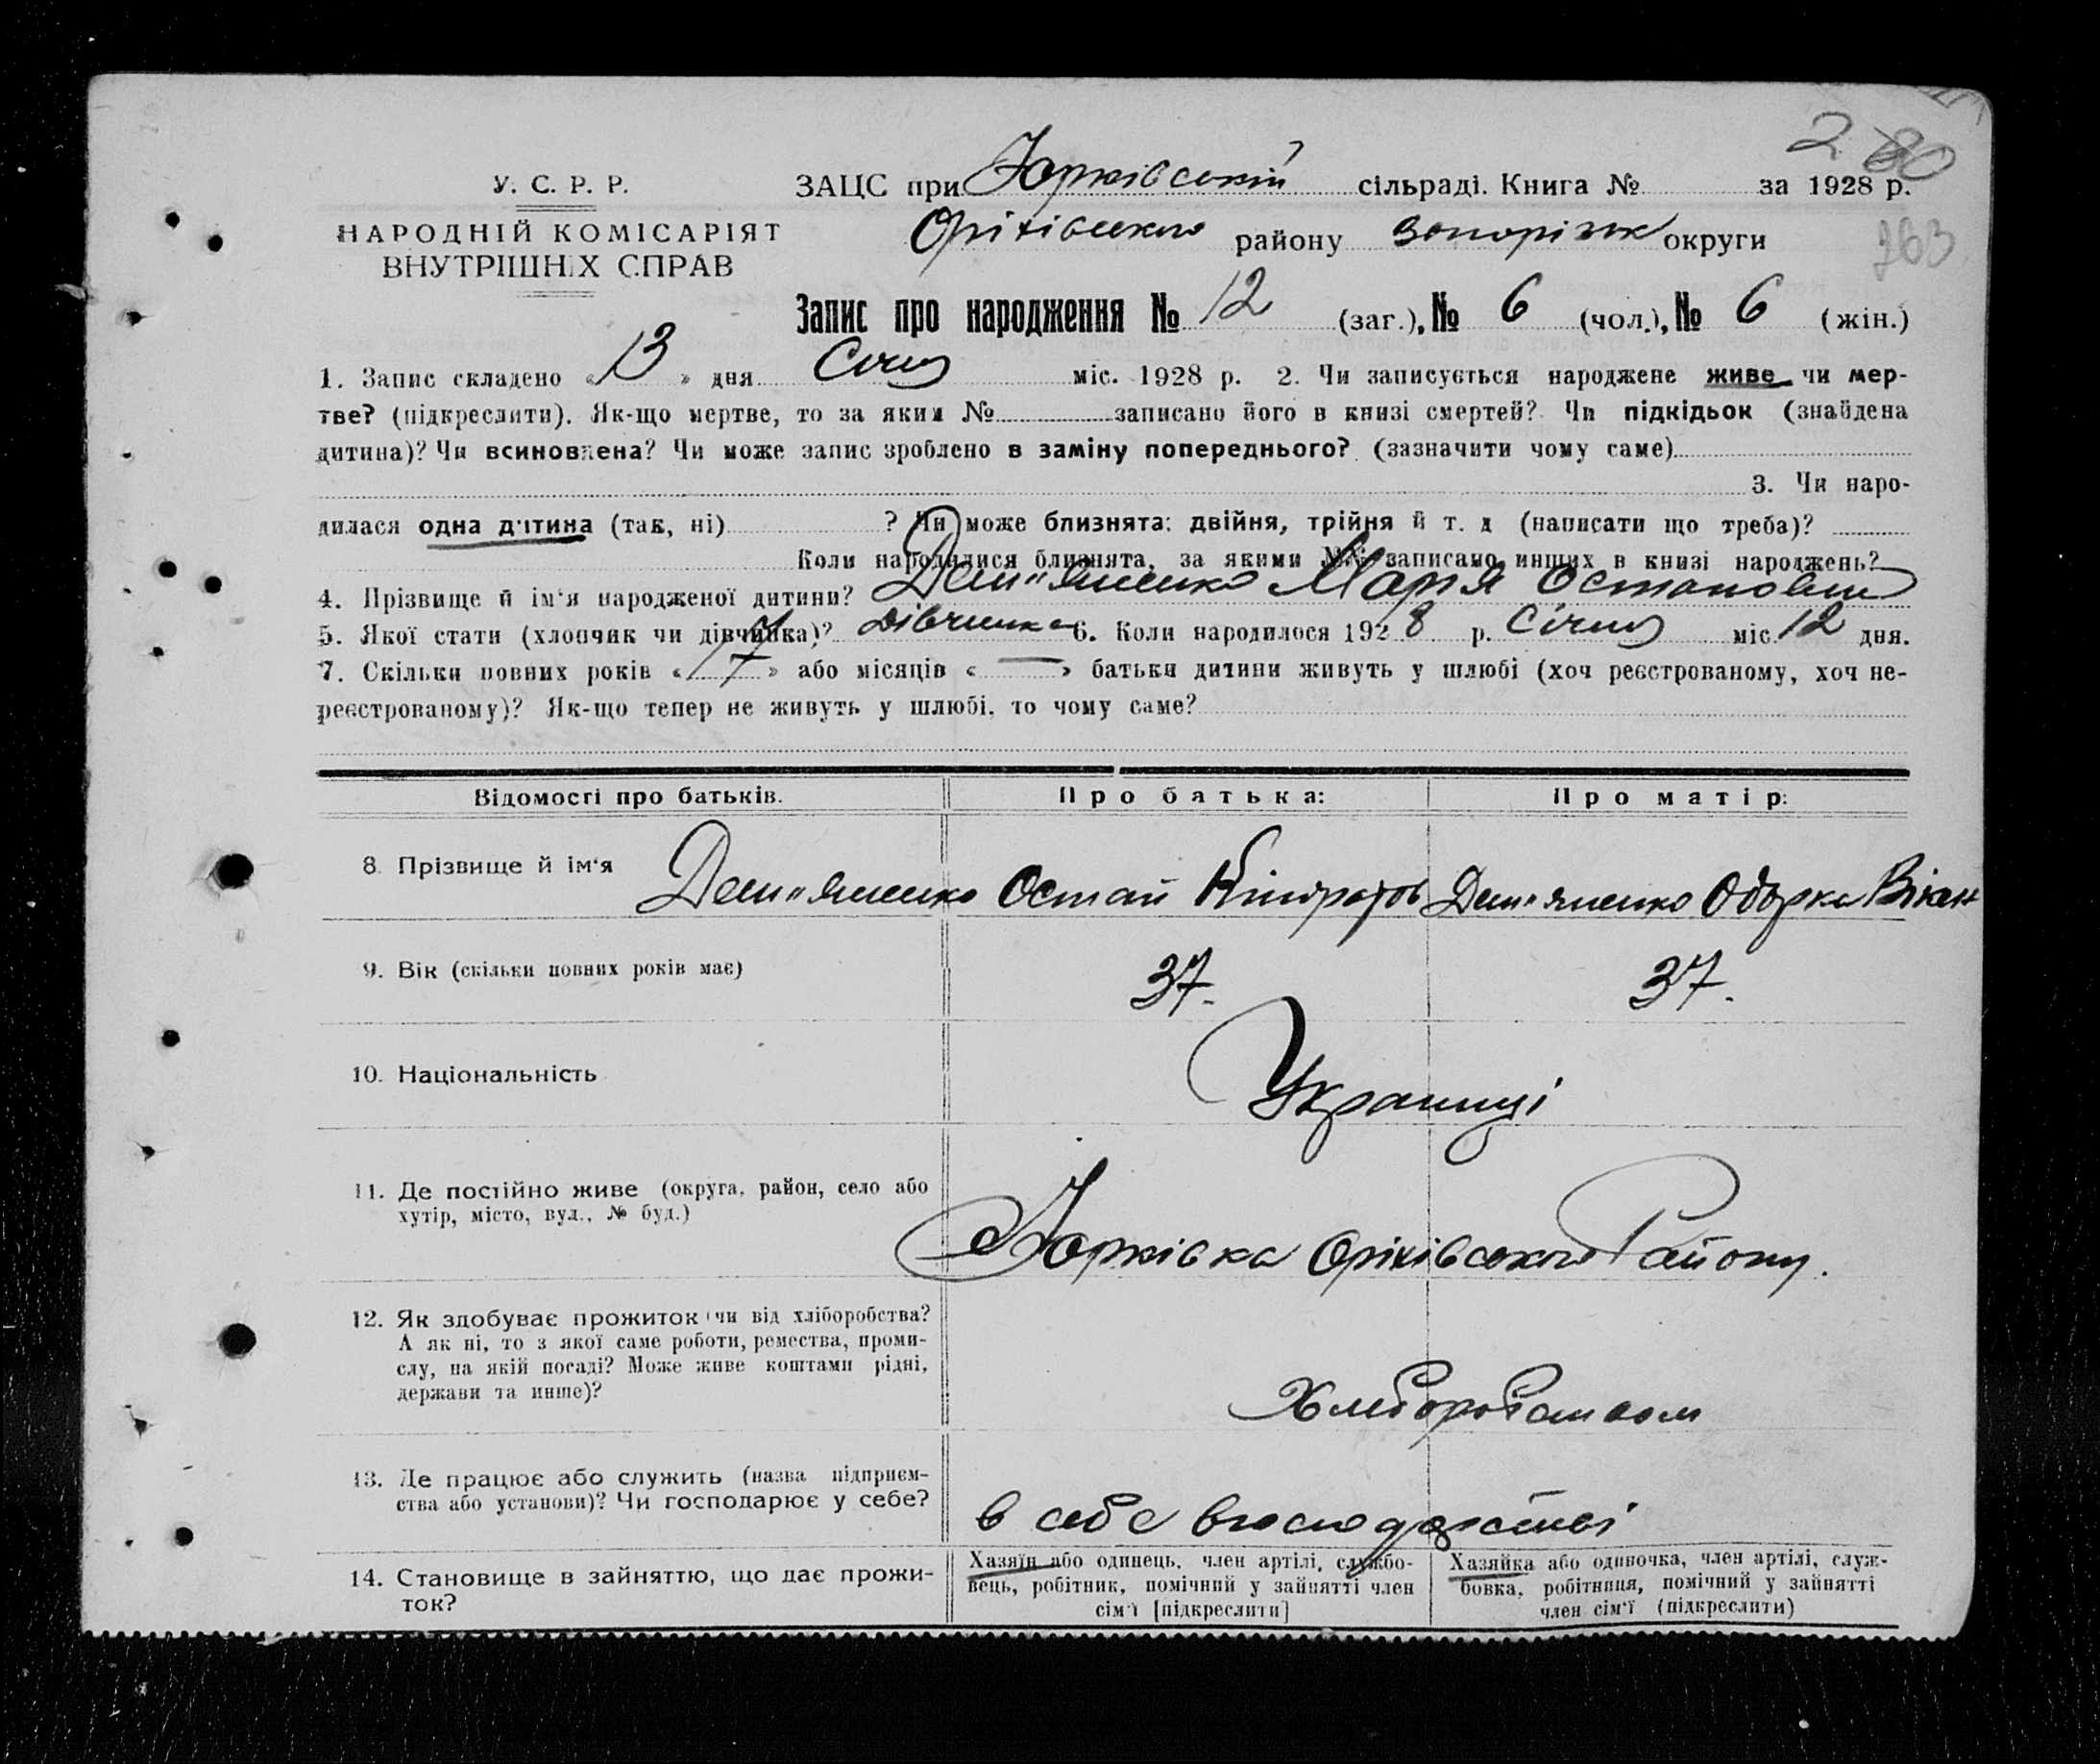 2 80
У. С. Р. Р.
НАРОДНІЙ КОМІСАРІЯТ
ВНУТРІШНІХ СПРАВ
ЗАЦС при Юрківській сільраді. Книга № за 1928 р.
Оріхівського району Запоріжж округи
763
Запис про народження № 12 (заг.), № 6 (чол.), № 6 (жін.)
1. Запис складено « 13 » дня Січня міс. 1928 р. 2. Чи записується народжене живе чи мер-
тве? (підкреслити). Як-що мертве, то за яким № записано його в книзі смертей? Чи підкідьок (знайдена
дитина)? Чи всиновлена? Чи може запис зроблено в заміну попереднього? (зазначити чому саме)
3. Чи наро-
дилася одна дитина (так, ні) ? Чи може близнята: двійня, трійня й т. д (написати що треба)?
Коли народилися близнята, за якими №№ записано инших в книзі народжень?
4. Прізвище й ім'я народженої дитини? Дем"яненко Марія Остаповна
5. Якої стати (хлопчик чи дівчинка)? Дівчинка 6. Коли народилося 1928 р. Січня міс. 12 дня.
7. Скільки повних років « 17 » або місяців « — » батьки дитини живуть у шлюбі (хоч реєстрованому, хоч не-
реєстрованому)? Як-що тепер не живуть у шлюбі, то чому саме?
Відомості про батьків. Про батька: Про матір:
8. Прізвище й ім'я Дем"яненко Остап Дем"яненко Одарка
9. Вік (скільки повних років має) 37. 37.
10. Національність Українці
11. Де постійно живе (округа, район, село або
хутір, місто, вул., № буд.)
Юрківка Оріхівського Району.
12. Як здобуває прожиток (чи від хліборобства?
А як ні, то з якої саме роботи, ремества, проми-
слу, на якій посаді? Може живе коштами рідні,
держави та инше)?
Хліборобством
13. Де працює або служить (назва підприєм-
ства або установи)? Чи господарює у себе?
в себе в господарстві
14. Становище в зайняттю, що дає прожи-
ток?
Хазяїн або одинець, член артілі, службо-
вець, робітник, помічний у зайнятті член
сім'ї [підкреслити]
Хазяйка або одиночка, член артілі, служ-
бовка, робітниця, помічний у зайнятті
член сім'ї (підкреслити)